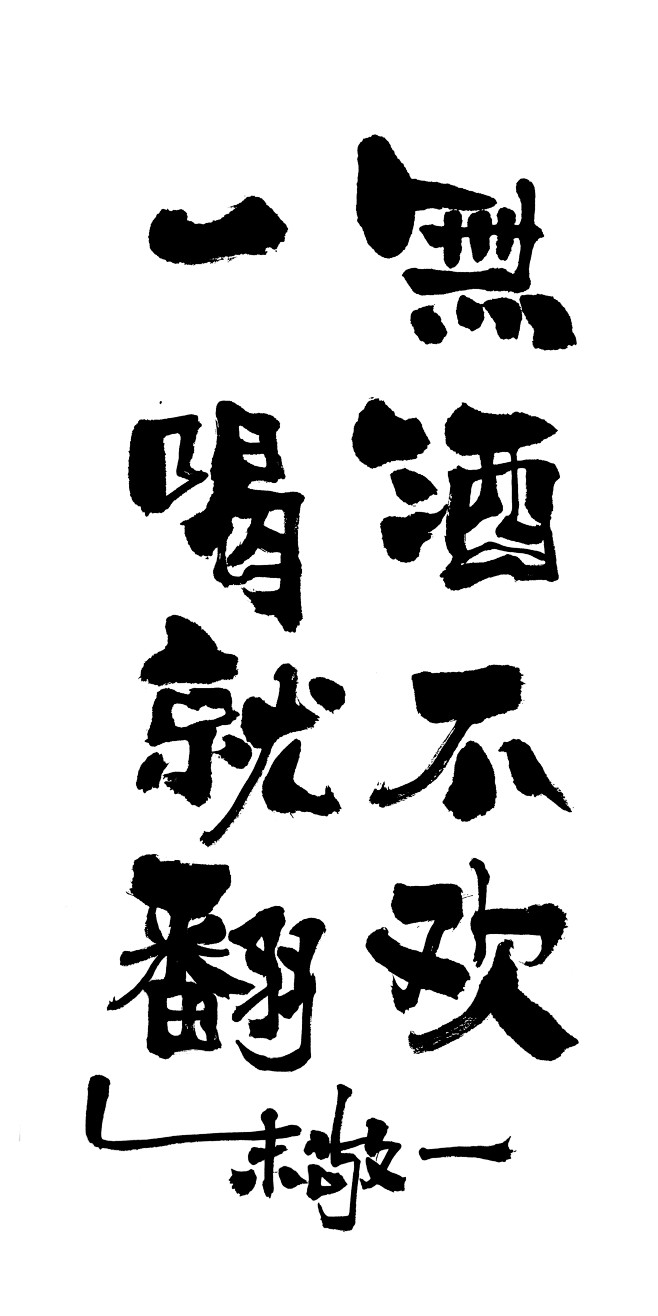 無酒不欢
一喝就翻